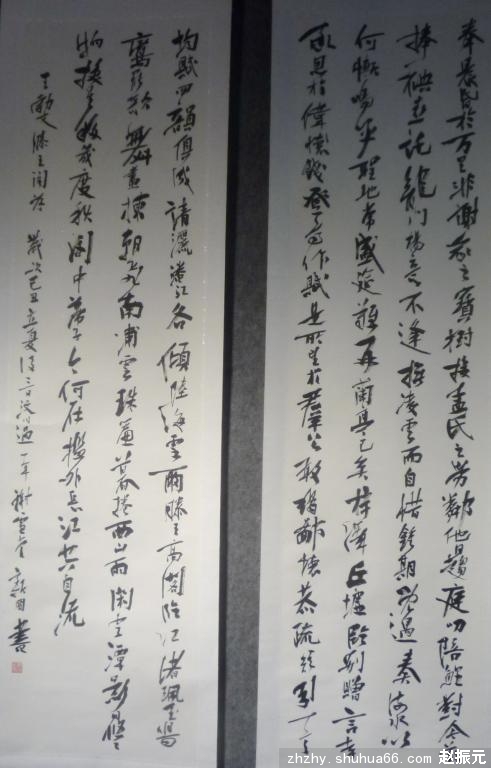 奉晨昏於万里非謝家之寶樹接孟氏之芳鄰他日趨庭叨陪鯉對今
捧袂喜託龍門楊意不逢撫凌雲而自惜鍾期既遇奏流水以
何慚嗚乎地不常盛筵難再蘭亭已矣梓澤丘墟臨別贈言幸
承恩於偉餞登高作賦是所望於群公敢竭鄙懷恭疏短引一言
均賦四韻俱成請灑潘江各傾陸海雲爾滕王高閣臨江渚珮玉鳴
鸞罷歌舞畫棟朝飛南浦雲珠簾暮捲西山雨閑雲潭影日悠
物換星移幾度秋閣中帝子今何在檻外長江空自流
王勃文滕王閣序 歲次己丑立夏後 一年 書
zhzhy.shuhua66.com 赵振元